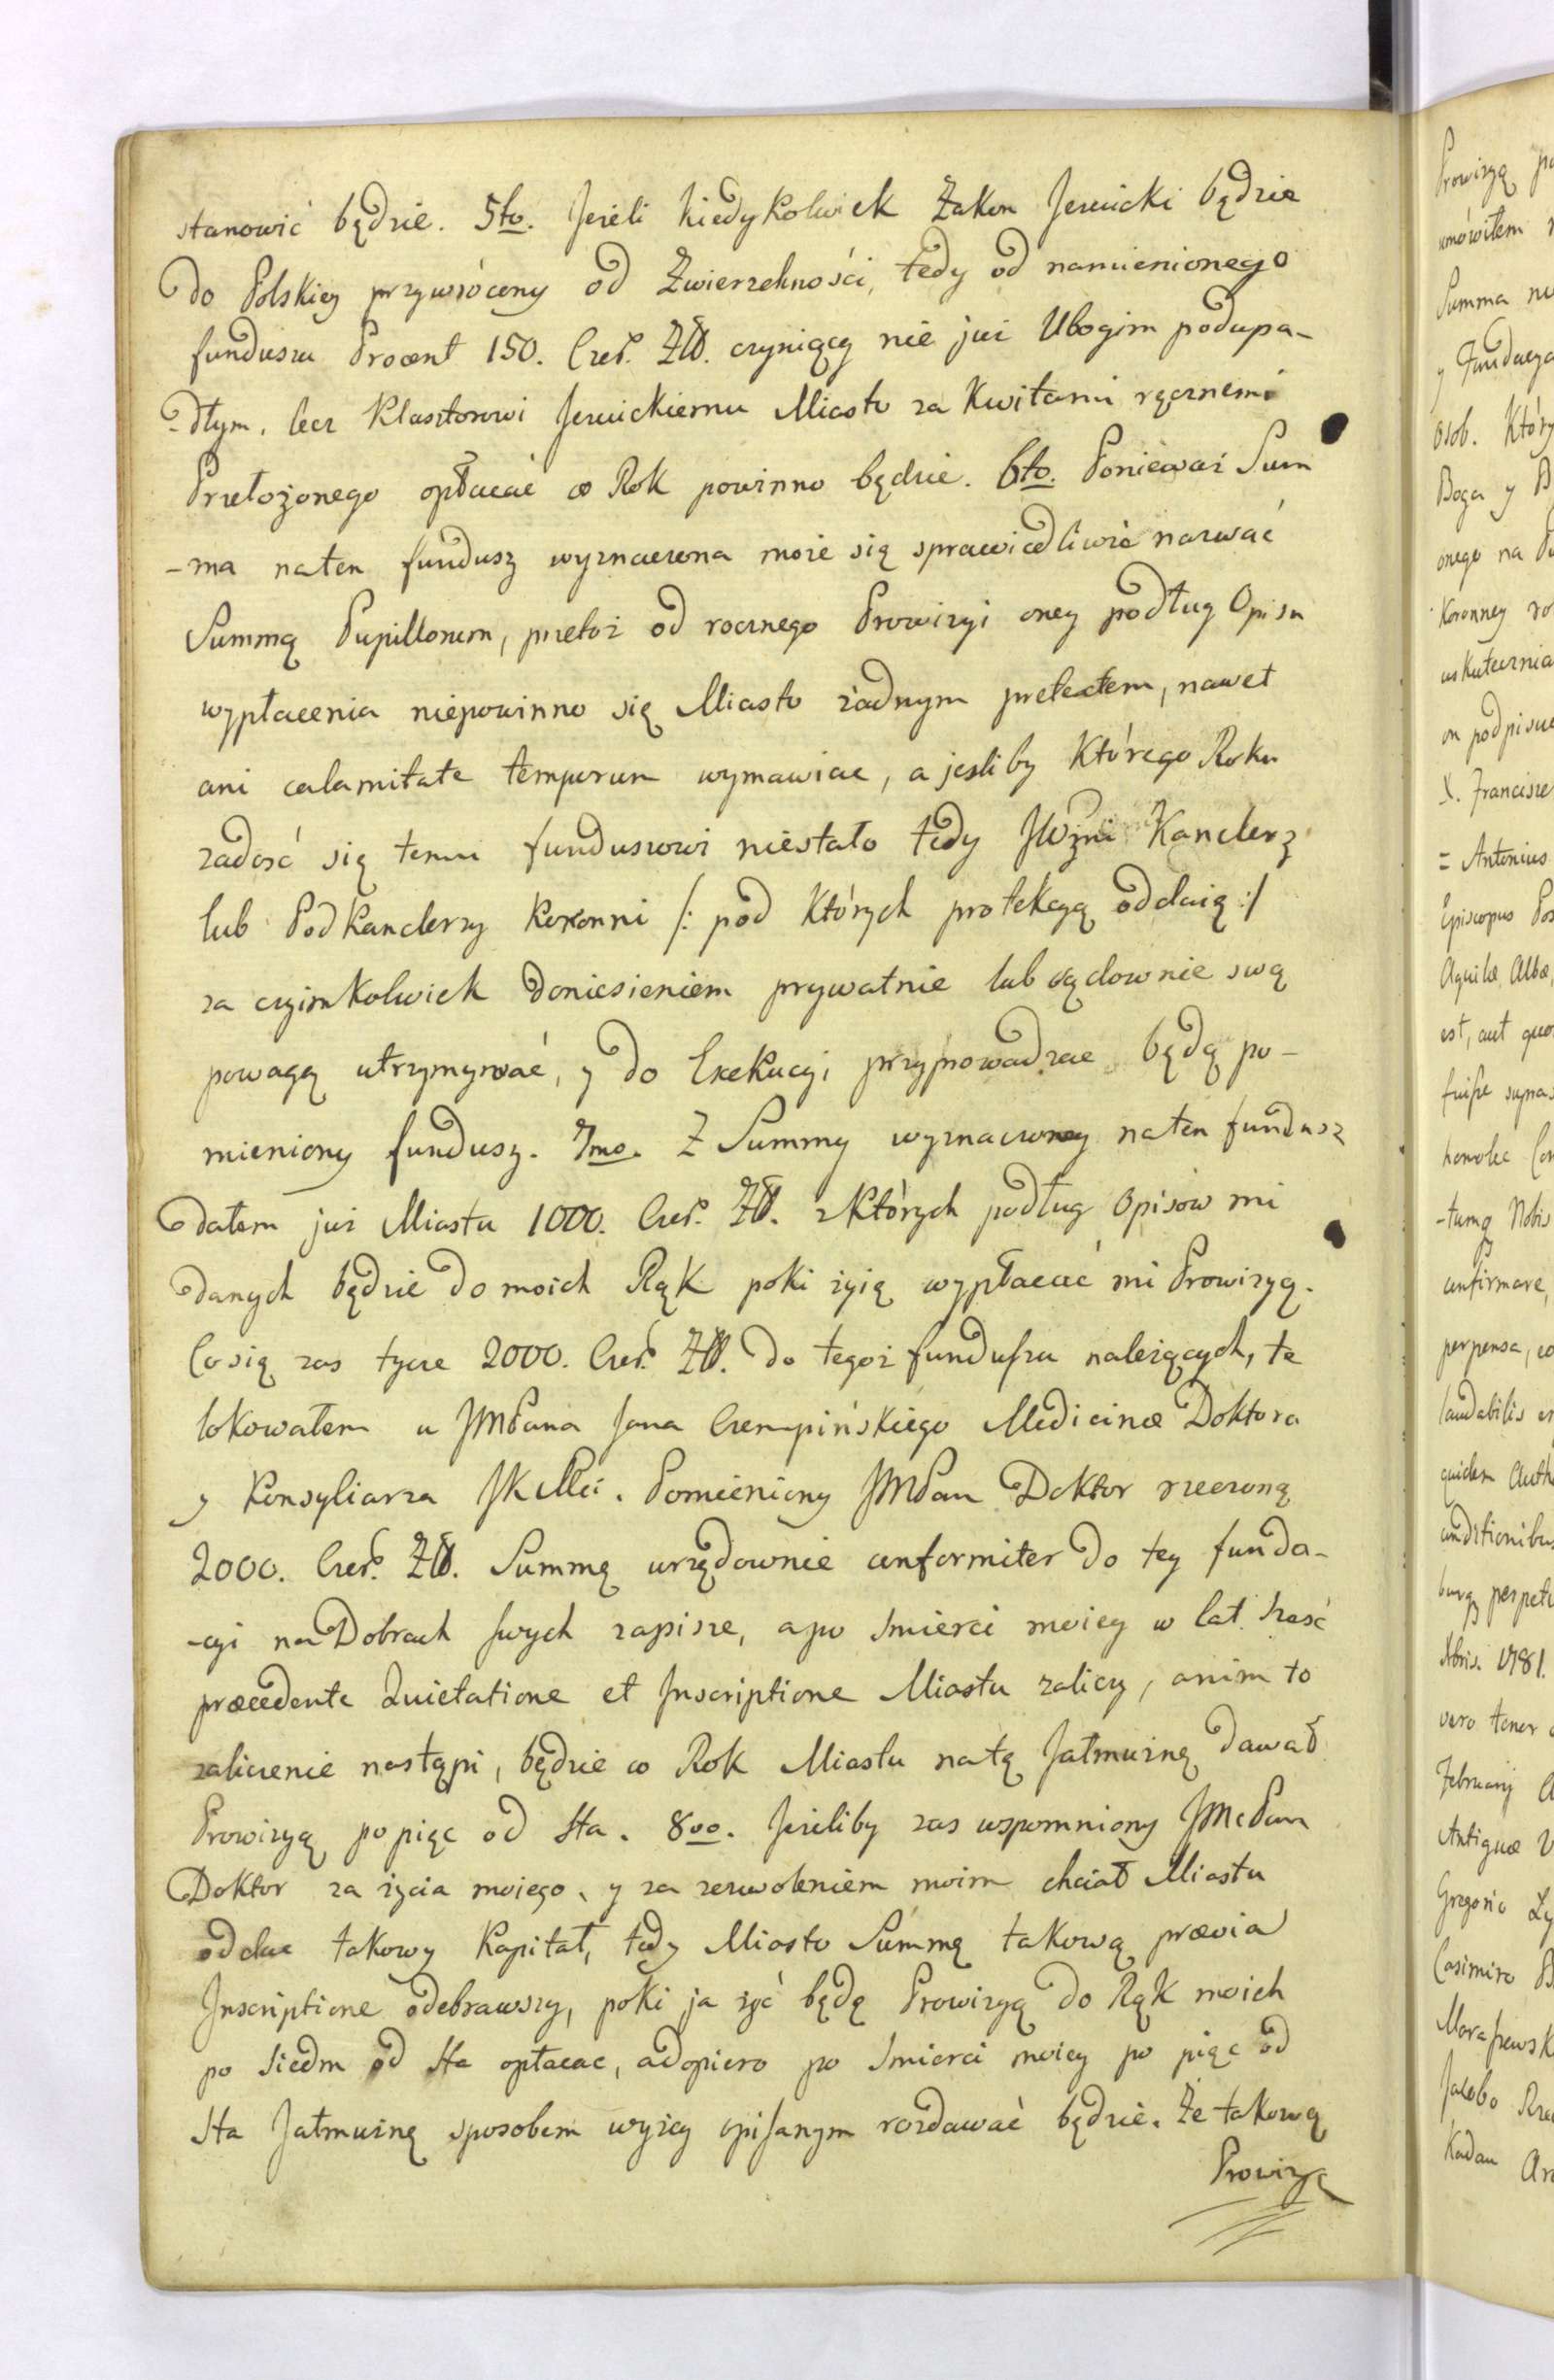 stanowić będzie. 5to. Jeżeli kiedykolwiek Zakon Jezuicki będzie
do Polskiey przywrócony od Zwierzchności, tedy od namienionego
funduszu Procent 150. Czeł. Złł. czyniący nie już Ubogim podupa-
-dłym, lecz Klasztorowi Jezuickiemu Miasto za Kwitami ręcznemi
Przełożonego opłacać co Rok powinno będzie. 6to. Ponieważ Sum
-ma naten fundusz wyznaczona może się sprawiedliwie nazwać
Summą Pupillorum, przetoż od rocznego Prowizyi oney podług Opisu
wypłacenia niepowinno się Miasto żadnym pretextem, nawet
ani calamitate temporum wymawiac, a jesliby Którego Roku
zadosć się temu funduszowi niestało tedy JWżni Kanclerz
lub PodKanclerzy Koronni /: pod Których protekcyą oddaię :/
za czyimkolwiek doniesieniem prywatnie lub sądownie swą
powagą utrzymywać, y do Exekucyi przyprowadzac będą po-
mieniony fundusz. 7mo. Z Summy wyznaczoney naten fundusz
dałem już Miastu 1000. Czeł. Złł. z Których podług Opisow mi
danych będzie do moich Rąk poki żyię wypłacać mi Prowizyą.
Co się zas tycze 2000. Czeł. Złł. do tegoż funduszu należących, te
lokowałem u JMPana Jana Czempińskiego Medicinæ Doktora
y Konsyliarza JKMci. Pomieniony JMPan Doktor rzeczoną
2000. Czeł. Złł. Summę urzędownie conformiter do tey funda-
-cyi na Dobrach swych zapisze, a po Smierci moiey w lat szesć
præcedente Quietatione et Inscriptione Miastu zaliczy, anim to
zaliczenie nastąpi, będzie co Rok Miastu natą Jałmużnę dawał
Prowizyą po pięc od sta. 8vo. Jeżeliby zas wspomniony JMcPan
Doktor za życia moiego, y za zezwoleniem moim chciał Miastu
oddac takowy Kapitał, tedy Miasto Summę takową prævia
Inscriptione odebrawszy, poki ja żyć będę Prowizyą do Rąk moich
po siedm od sta opłacac, adopiero po Smierci moiey po pięc od
sta Jałmużnę sposobem wyżey opisanym rozdawać będzie. Że takową
Prowizyą
Prowizyą
umówiłem
Summa
y Fundacya
osob. Który
Boga y
onego na
Koronney
uskutecznia
on podpisu
X. Francisze
= Antonius
Episcopus
Aquilæ Albæ,
est, aut quo
fuisse supra
-tumq Nobis
confirmare,
perpensa,
laudabilis
quidem Auth
conditionibus
perpetu
Xbris. 1781.
vero tenor
Februarij
Antiquæ
Gregorio
Casimiro
Jacobo